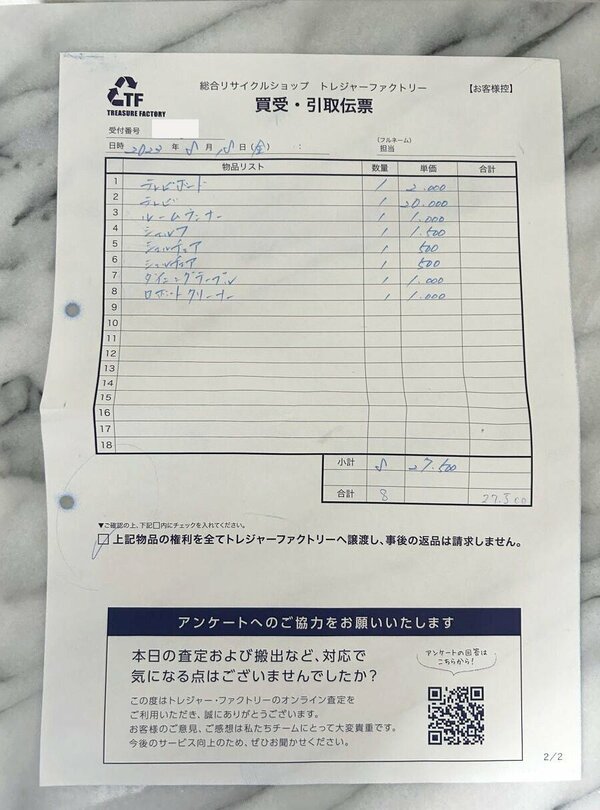 TF
TREASURE FACTORY
総合リサイクルショップ トレジャーファクトリー
【お客様控】
買受・引取伝票
受付番号
日時 2022 年 8 月 18 日 (金) :
(フルネーム)
担当
物品リスト 数量 単価 合計
1 テレビボード 1 2.000
2 テレビ 1 20.000
3 ルームランナー 1 1.000
4 シェルフ 1 1.500
5 シェルチェア 1 500
6 シェルチェア 1 500
7 ダイニングテーブル 1 1.000
8 ロボットクリーナー 1 1.000
9
10
11
12
13
14
15
16
17
18
小計 8 27.500
合計 8 27.500
▼ご確認の上、下記□内にチェックを入れてください。
□ 上記物品の権利を全てトレジャーファクトリーへ譲渡し、事後の返品は請求しません。
アンケートへのご協力をお願いいたします
本日の査定および搬出など、対応で
気になる点はございませんでしたか?
アンケートの回答は
こちらから!
この度はトレジャー・ファクトリーのオンライン査定を
ご利用いただき、誠にありがとうございます。
お客様のご意見、ご感想は私たちチームにとって大変貴重です。
今後のサービス向上のため、ぜひお聞かせください。
2/2